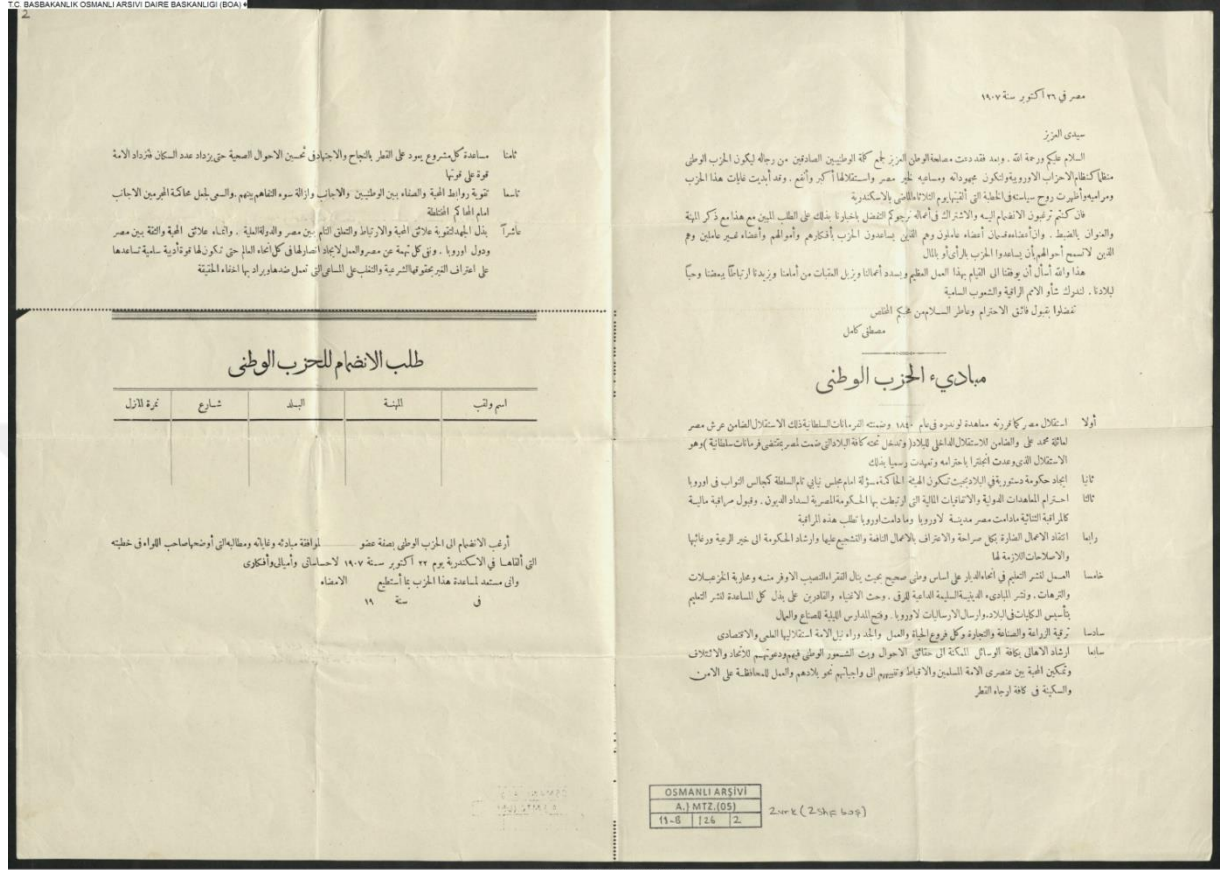 T.C. BASBAKANLIK OSMANLI ARSIVI DAIRE BASKANLIGI (BOA)
2
مصر في ٢٦ اكتوبر سنة ١٩٠٧
سيدى العزيز
السلام عليكم ورحمة الله . وبعد فقد دعت مصلحة الوطن العزيز لجمع كلمة الوطنيين الصادقين من رجاله ليكون الحزب الوطنى
منظما كنظام الاحزاب الاوروبية ولتكون مجهوداته ومساعيه لخير مصر واستقلالها أكبر وأنفع . وقد أبديت غايات هذا الحزب
ومراميه وأظهرت روح سياسته فى الخطبة التى ألقيتها يوم الثلاثاء الماضى بالاسكندرية
فان كنتم ترغبون الانضمام اليه والاشتراك فى أعماله نرجوكم التفضل باخبارنا بذلك على الطلب المبين مع هذا مع ذكر المهنة
والعنوان بالضبط . وان أعضاءه قسمان أعضاء عاملون وهم الذين يساعدون الحزب بأفكارهم وأموالهم وأعضاء غير عاملين وهم
الذين لا تسمح أحوالهم بأن يساعدوا الحزب بالرأى أو بالمال
هذا والله أسأل أن يوفقنا الى القيام بهذا العمل العظيم ويسدد أعمالنا ويزيل العقبات من أمامنا ويزيدنا ارتباطا ببعضنا وحبا
لبلادنا . لندرك شأو الامم الراقية والشعوب السامية
تفضلوا بقبول فائق الاحترام وعاطر السلام من محبكم المخلص
مصطفى كامل
مبادىء الحزب الوطنى
أولا استقلال مصر كما قررته معاهدة لوندره فى عام ١٨٤٠ وضمنته الفرمانات السلطانية ذلك الاستقلال الضامن عرش مصر
لعائلة محمد على والضامن للاستقلال الداخلى للبلاد (وتدخل تحته كافة البلاد التى ضمت لمصر بمقتضى فرمانات سلطانية) وهو
الاستقلال الذى وعدت انجلترا باحترامه وتعهدت رسميا بذلك
ثانيا ايجاد حكومة دستورية فى البلاد بحيث تكون الهيئة الحاكمة مسؤلة امام مجلس نيابى تام السلطة كمجالس النواب فى اوروبا
ثالثا احترام المعاهدات الدولية والاتفاقيات المالية التى ارتبطت بها الحكومة المصرية لسداد الديون . وقبول مراقبة مالية
كالمراقبة الثنائية مادامت مصر مدينة لاوروبا وما دامت اوروبا تطلب هذه المراقبة
رابعا انتقاد الاعمال الضارة بكل صراحة والاعتراف بالاعمال النافعة والتشجيع عليها وارشاد الحكومة الى خير الرعية ورغائبها
والاصلاحات اللازمة لها
خامسا العمل لنشر التعليم فى أنحاء الديار على اساس وطنى صحيح بحيث ينال الفقراء النصيب الاوفر منه ومحاربة الخزعبلات
والترهات . ونشر المبادىء الدينية السليمة الداعية للرقى . وحث الاغنياء والقادرين على بذل كل المساعدة لنشر التعليم
بتأسيس الكليات فى البلاد وارسال الارساليات لاوروبا . وفتح المدارس الليلية للصناع والعمال
سادسا ترقية الزراعة والصناعة والتجارة وكل فروع الحياة والعمل والجد وراء نيل الامة استقلاليها العلمى والاقتصادى
سابعا ارشاد الاهالى بكافة الوسائل الممكنة الى حقائق الاحوال وبث الشعور الوطنى فيهم ودعوتهم للأتحاد والائتلاف
وتمكين المحبة بين عنصرى الامة المسلمين والاقباط وتنبيههم الى واجباتهم نحو بلادهم والعمل للمحافظة على الامن
والسكينة فى كافة ارجاء القطر
OSMANLI ARŞİVİ
A.} MTZ.(05)
126 2
2vrk (2shf boş)
ثامنا مساعدة كل مشروع يعود على القطر بالنجاح والاجتهاد فى تحسين الاحوال الصحية حتى يزداد عدد السكان فتزداد الامة
قوة على قوتها
تاسعا تقوية روابط المحبة والصفاء بين الوطنيين والاجانب وازالة سوء التفاهم بينهم والسعى لجعل محاكمة المجرمين الاجانب
امام المحاكم المختلطة
عاشرا بذل الجهد لتقوية علائق المحبة والارتباط والتعلق التام بين مصر والدولة العلية . وانماء علائق المحبة والثقة بين مصر
ودول اوروبا . ونفى كل تهمة عن مصر والعمل لايجاد أنصار لها فى كل أنحاء العالم حتى تكون لها قوة أدبية سامية تساعدها
على اعتراف الغير بحقوقها الشرعية والتغلب على المساعى التى تعمل ضدها ويراد بها اخفاء الحقيقة
طلب الانضمام للحزب الوطنى
اسم ولقب المهنة البلد شارع نمرة المنزل
أرغب الانضمام الى الحزب الوطنى بصفة عضو لموافقة مبادئه وغاياته ومطالبه التى أوضحها صاحب اللواء فى خطبته
التى ألقاها فى الاسكندرية يوم ٢٢ أكتوبر سنة ١٩٠٧ لاحساساتى وأميالى وأفكارى
وانى مستعد لمساعدة هذا الحزب بما أستطيع الامضاء
فى سنة ١٩